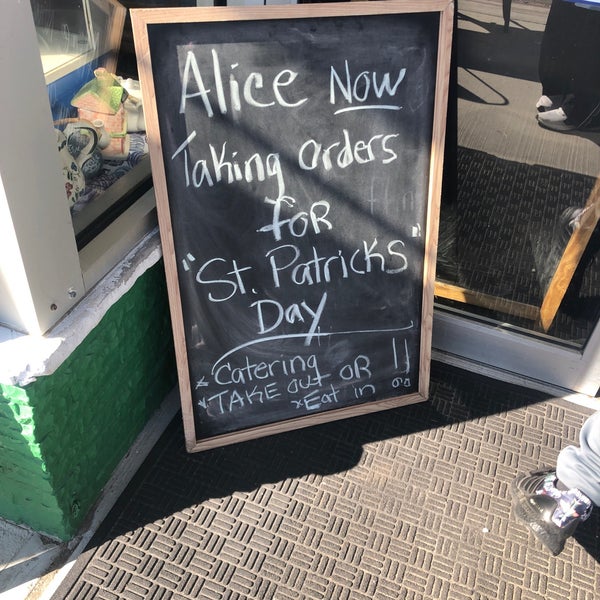 Alice Now
Taking orders
for
"St. Patricks"
Day
* Catering
* TAKE OUT OR !!
* Eat in